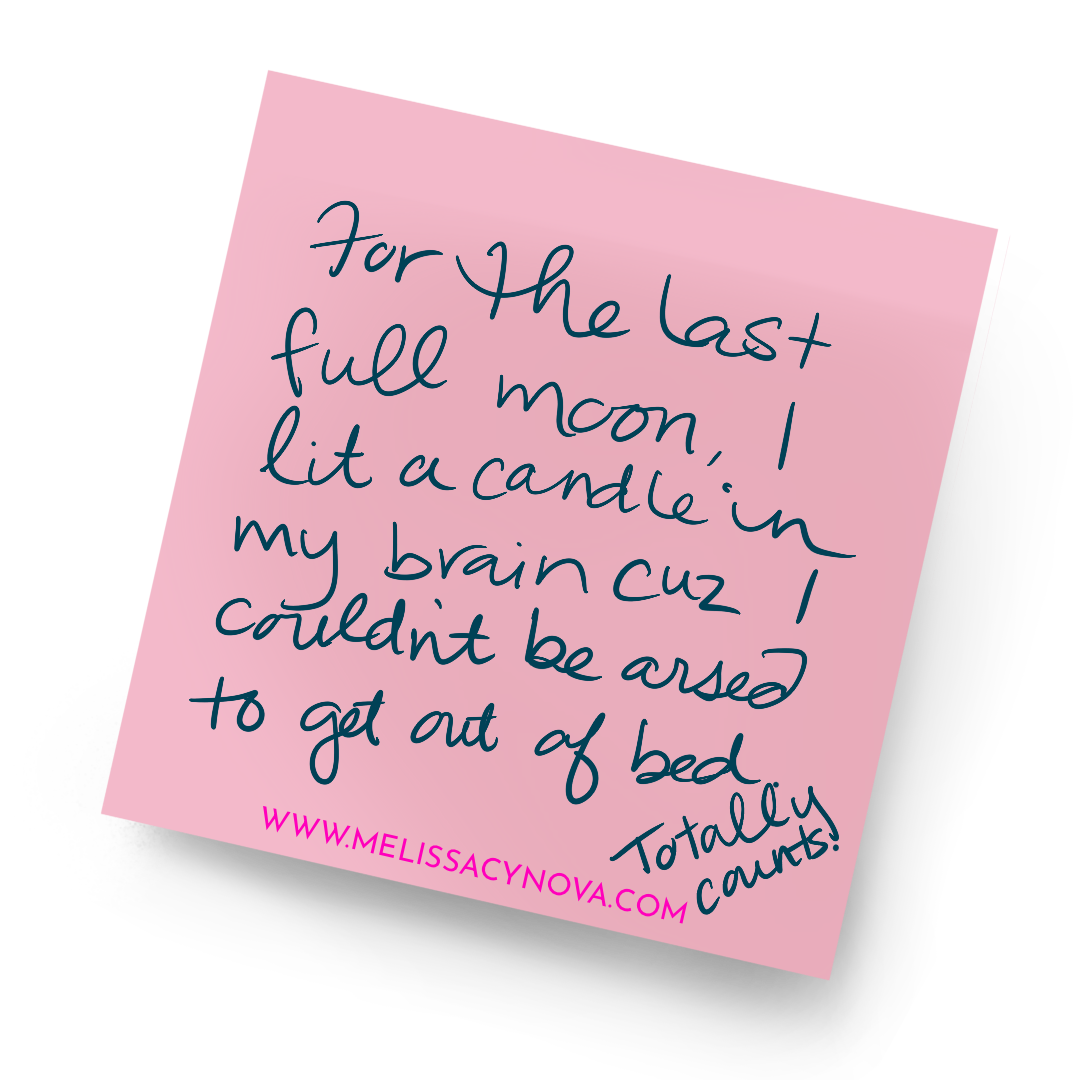 For the last
full moon, I
lit a candle in
my brain cuz I
couldn't be arsed
to get out of bed.
Totally
counts!
WWW.MELISSACYNOVA.COM